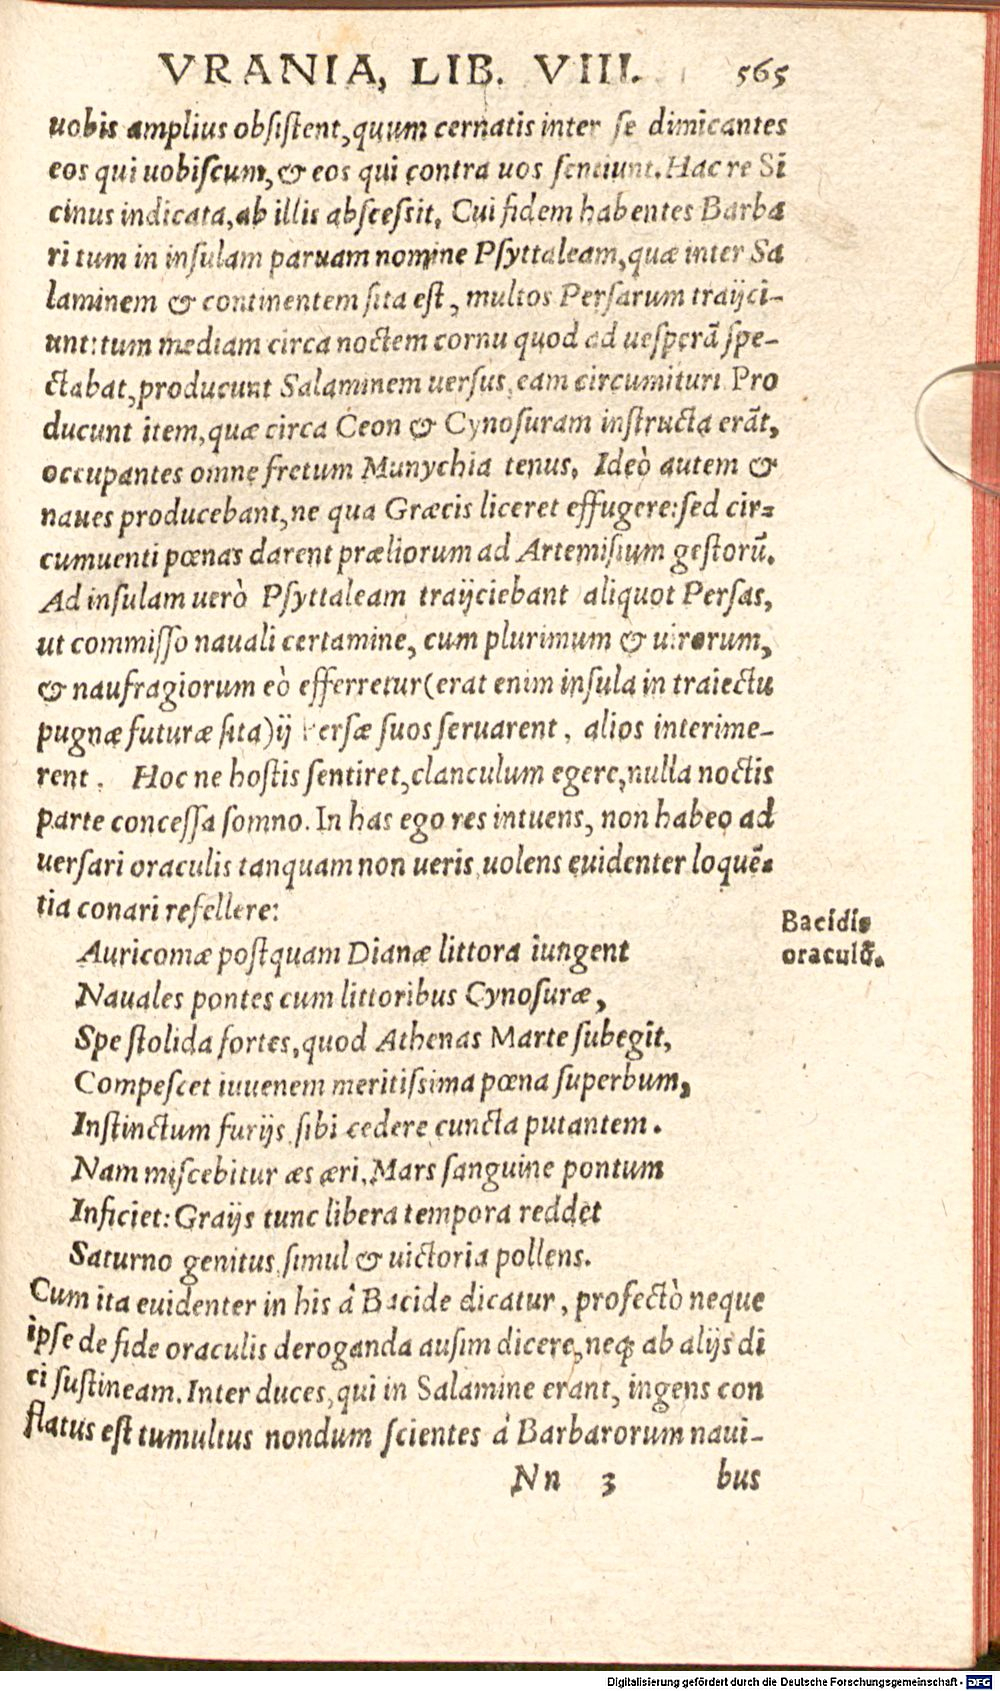 VRANIA, LIB. VIII. 565
uobis amplius obsistent, quum cernatis inter se dimicantes
eos qui uobiscum, & eos qui contra uos sentiunt. Hac re Si
cinus indicata, ab illis abscessit, Cui fidem habentes Barba
ri tum in insulam paruam nomine Psyttaleam, quæ inter Sa
laminem & continentem sita est, multos Persarum traijci-
unt: tum mediam circa noctem cornu quod ad uesperã spe-
ctabat, producunt Salaminem uersus, eam circumituri Pro
ducunt item, quæ circa Ceon & Cynosuram instructa erãt,
occupantes omne fretum Munychia tenus. Ideò autem &
naues producebant, ne qua Græcis liceret effugere: sed cir=
cumuenti pœnas darent præliorum ad Artemisium gestorũ.
Ad insulam uerò Psyttaleam traijciebant aliquot Persas,
ut commisso nauali certamine, cum plurimum & uirorum,
& naufragiorum eò efferretur (erat enim insula in traiectu
pugnæ futuræ sita) ij ersæ suos seruarent, alios interime-
rent. Hoc ne hostis sentiret, clanculum egere, nulla noctis
parte concessa somno. In has ego res intuens, non habeo ad
uersari oraculis tanquam non ueris uolens euidenter loquẽ=
tia conari refellere:
Bacidis
oraculũ.
Auricomæ postquam Dianæ littora iungent
Nauales pontes cum littoribus Cynosuræ,
Spe stolida fortes, quod Athenas Marte subegit,
Compescet iuuenem meritissima pœna superbum,
Instinctum furijs, sibi cedere cuncta putantem.
Nam miscebitur æs æri, Mars sanguine pontum
Inficiet: Graijs tunc libera tempora reddet
Saturno genitus, simul & uictoria pollens.
Cum ita euidenter in his â Bacide dicatur, profectò neque
ipse de fide oraculis deroganda ausim dicere, neq; ab alijs di
ci sustineam. Inter duces, qui in Salamine erant, ingens con
flatus est tumultus nondum scientes â Barbarorum naui-
Nn 3 bus
Digitalisierung gefördert durch die Deutsche Forschungsgemeinschaft - DFG